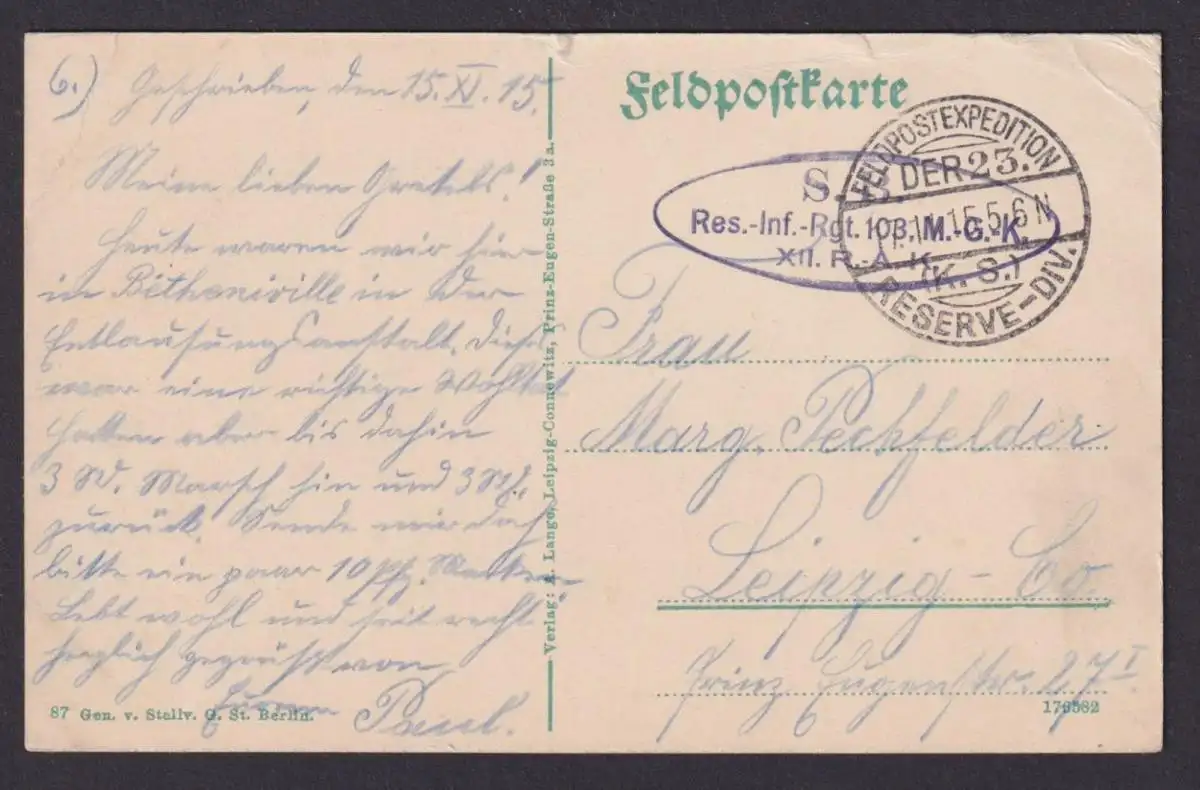 6.) Geschrieben, den 15. XI. 15.
Meine lieben Gretels!
Heute waren wir hier
in Bétheniville in der
Entlausungsanstalt. Dieses
war eine richtige Wohltat
hatten aber bis dahin
3 St. Marsch hin und 3 St.
zurück. Sende mir doch
bitte ein paar 10 Pfg. Marken
Lebt wohl und seid recht
herzlich gegrüßt von
Eurem Paul.
87 Gen. v. Stellv. G. St. Berlin.
Verlag: A. Lange, Leipzig-Connewitz, Prinz-Eugen-Straße 3a.
Feldpostkarte
S. B.
Res.-Inf.-Rgt. 103, M.-G.-K.
XII. R.-A.-K.
FELDPOSTEXPEDITION
DER 23.
11.15. 5-6 N
(K.S.)
RESERVE-DIV.
Frau
Marg. Pechfelder
Leipzig-Co.
Prinz Eugenstr. 27 I
176582